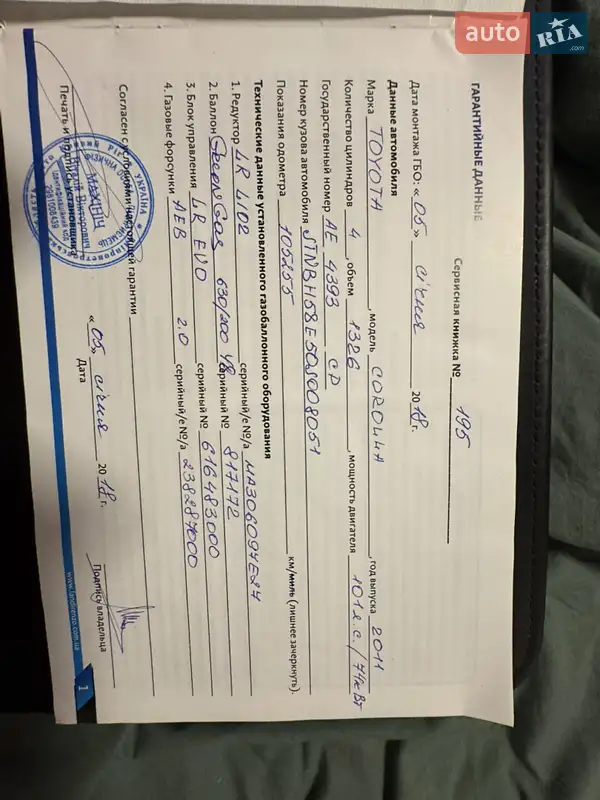 auto RIA .com
ГАРАНТИЙНЫЕ ДАННЫЕ
Сервисная книжка № 195
Дата монтажа ГБО: «05» січня 2018 г.
Данные автомобиля
Марка TOYOTA, модель COROLLA, год выпуска 2011
Количество цилиндров 4, объем 1326, мощность двигателя 101 л.с. / 74 кВт
Государственный номер AE 4393 CD
Номер кузова автомобиля JTNBH58E50J008051
Показания одометра 105255 км/миль (лишнее зачеркнуть).
Технические данные установленного газобаллонного оборудования
1. Редуктор LR LI02 серийный/е №/а MA306094E24
2. Баллон GreenGas 630/200 48 серийный № 817172
3. Блок управления LR EVO серийный № 616483000
4. Газовые форсунки AEB 2.0 серийный/е №/а 238287000
Согласен с условиями настоящей гарантии
Печать и подпись установщика
УКРАЇНА
МАХІНІЧ
Вікторович
Ідентифікаційний код
«05» січня 2018 г.
Дата
Подпись владельца
www.landirenzo.com.ua
1